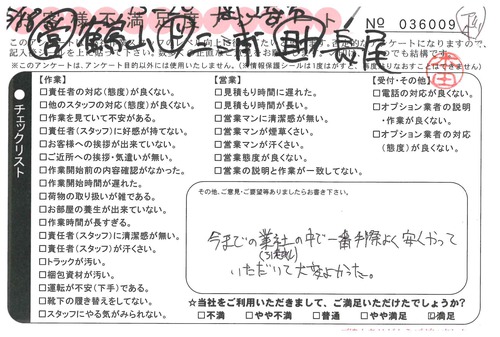 No 036009
※このアンケートは、アンケート目的以外には使用いたしません。
チェックリスト
【作業】
□責任者の対応(態度)が良くない。
□他のスタッフの対応(態度)が良くない。
□作業を見ていて不安がある。
□責任者(スタッフ)に好感が持てない。
□お客様への挨拶が出来ていない。
□ご近所への挨拶・気遣いが無い。
□作業開始前の内容確認がなかった。
□作業開始時間が遅れた。
□荷物の取り扱いが雑である。
□お部屋の養生が出来ていない。
□作業時間が長すぎる。
□責任者(スタッフ)に清潔感が無い。
□責任者(スタッフ)が汗くさい。
□トラックが汚い。
□梱包資材が汚い。
□運転が不安(下手)である。
□靴下の履き替えをしてない。
□スタッフにやる気がみられない。
【営業】
□見積もり時間に遅れた。
□見積もり時間が長い。
□営業マンに清潔感が無い。
□営業マンが煙草くさい。
□営業マンが汗くさい。
□営業態度が良くない。
□営業の説明と作業が一致してない。
【受付・その他】
□電話の対応が良くない。
□オプション業者の説明
・作業が良くない。
□オプション業者の対応
(態度)が良くない。
その他、ご意見・ご要望等ありましたらお書き下さい。
今までの業社の中で一番手際よく安くやって
(引越し)
いただいて大変よかった。
☆当社をご利用いただきまして、ご満足いただけたでしょうか?
□不満 □やや不満 □普通 □やや満足 ☑満足